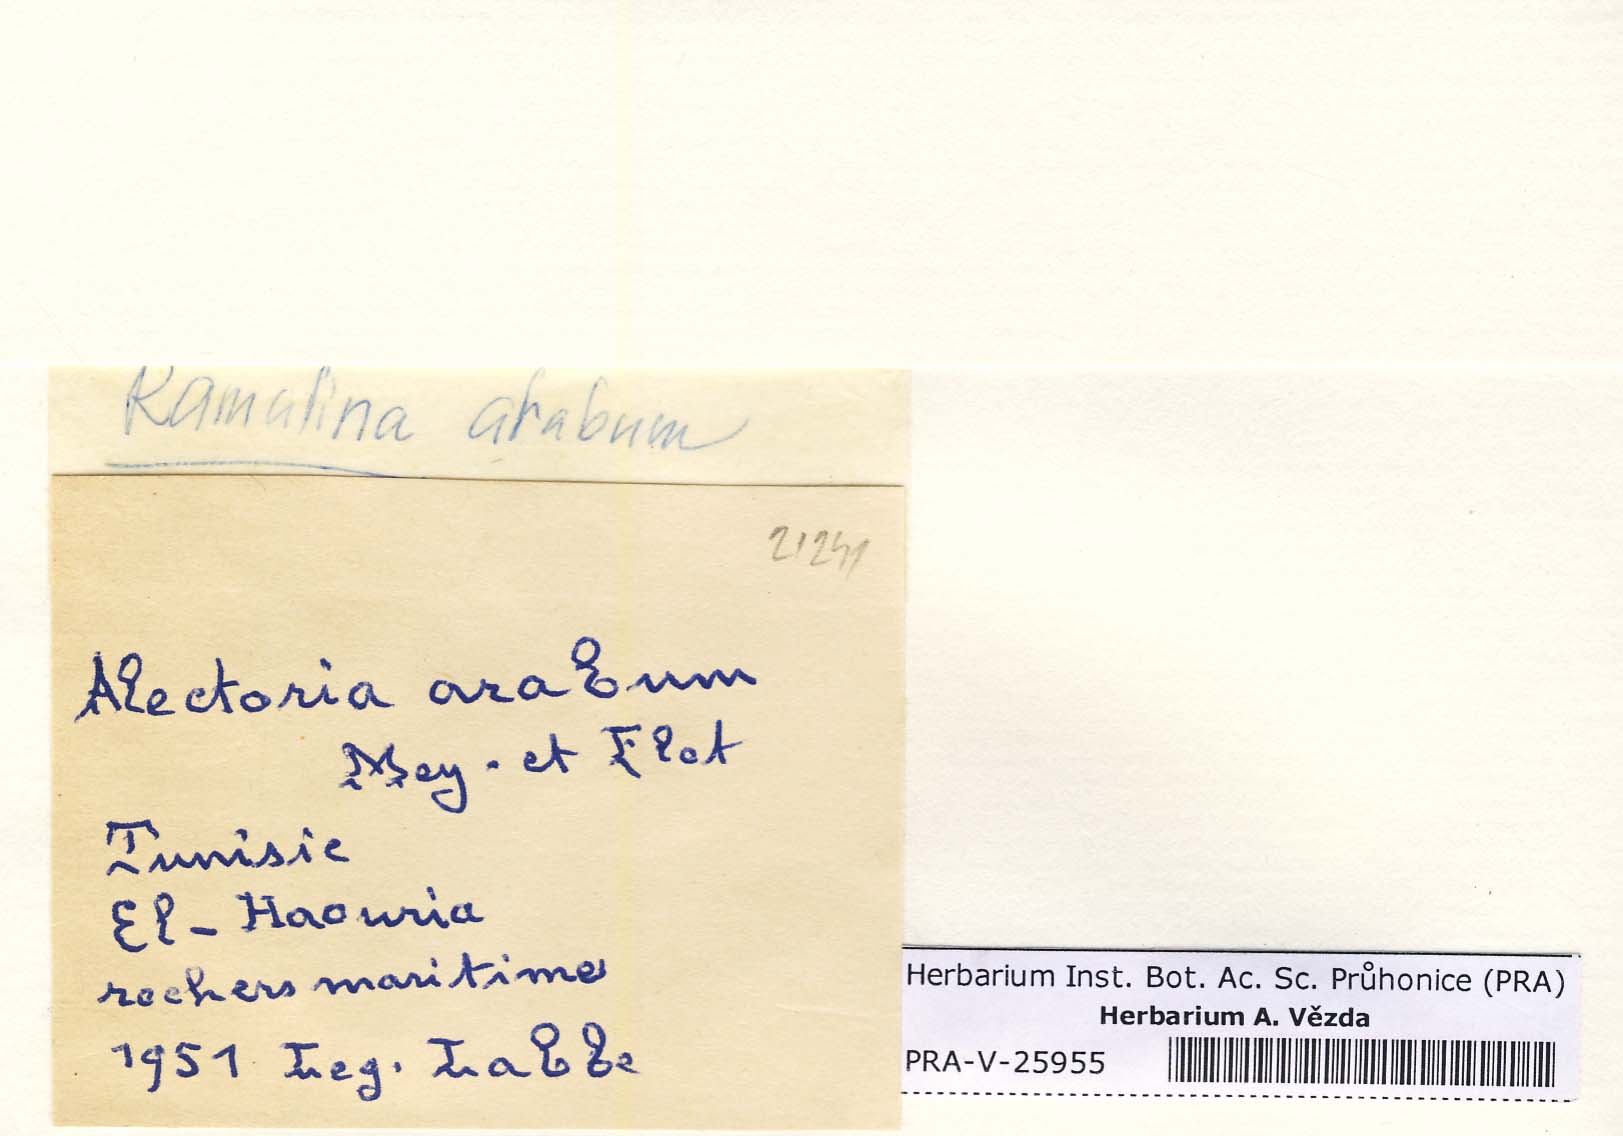 Ramalina arabum
21241
Alectoria arabum
Mey. et Flot
Tunisie
El-Haouria
rochers maritimes
1951 Leg. Labbe
Herbarium Inst. Bot. Ac. Sc. Průhonice (PRA)
Herbarium A. Vězda
PRA-V-25955